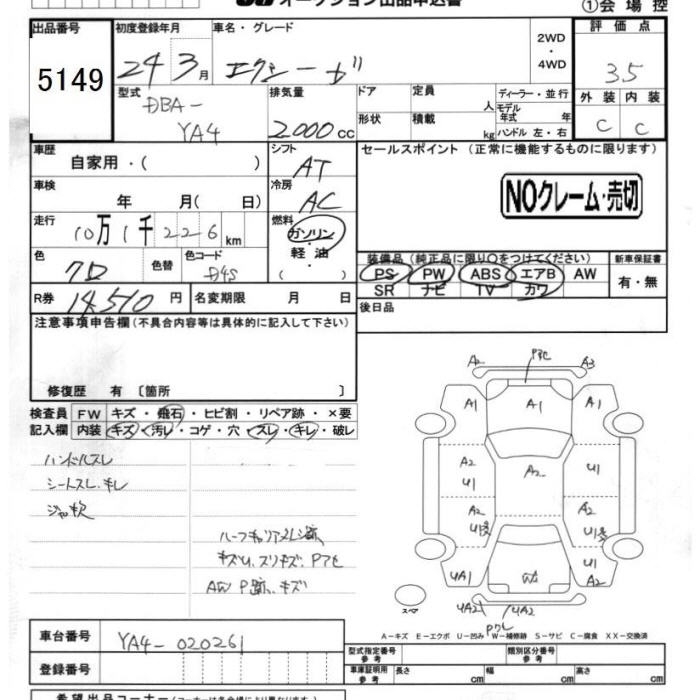 オークション出品申込書
①会場控
出品番号
5149
初度登録年月
24 3月
車名・グレード
エクシーガ
2WD
・
4WD
評価点
3.5
型式
DBA-
YA4
排気量
2000cc
ドア
定員
人
ディーラー・並行
モデル年式 年
形状
積載
kg
ハンドル 左・右
外装
内装
C
C
車歴
自家用・( )
シフト
AT
セールスポイント (正常に機能するものに限ります)
NOクレーム・売切
車検
年 月( 日)
冷房
AC
走行
10万1千226km
燃料
ガソリン
・
軽油
・
( )
色
クロ
色替
色コード
D4S
装備品 (純正品に限り○をつけてください)
新車保証書
PS PW ABS エアB AW
SR ナビ TV カワ
有・無
R券
14,510円
名変期限 月 日
後日品
注意事項申告欄 (不具合内容等は具体的に記入して下さい)
修復歴 有 〔箇所 〕
検査員
記入欄
FW キズ・飛石・ヒビ割・リペア跡・×要
内装 キズ・汚レ・コゲ・穴・スレ・キレ・破レ
ハンドルスレ
シートスレ、キレ
ジャッキ欠
キズU、スリキズ、Pアセ
AW P跡、キズ
A2
Pアセ
A3
A1
A1
A1
A2
U1
A2
U1
A2
A2
UA1
W
U1
A2
UA2
UA2
スペア
A−キズ E−エクボ U−凹み W−補修跡 S−サビ C−腐食 XX−交換済
車台番号
YA4-020261
登録番号
型式指定番号
参考
類別区分番号
参考
車庫証明用
参考
長さ cm
幅 cm
高さ cm
希望出品コーナー